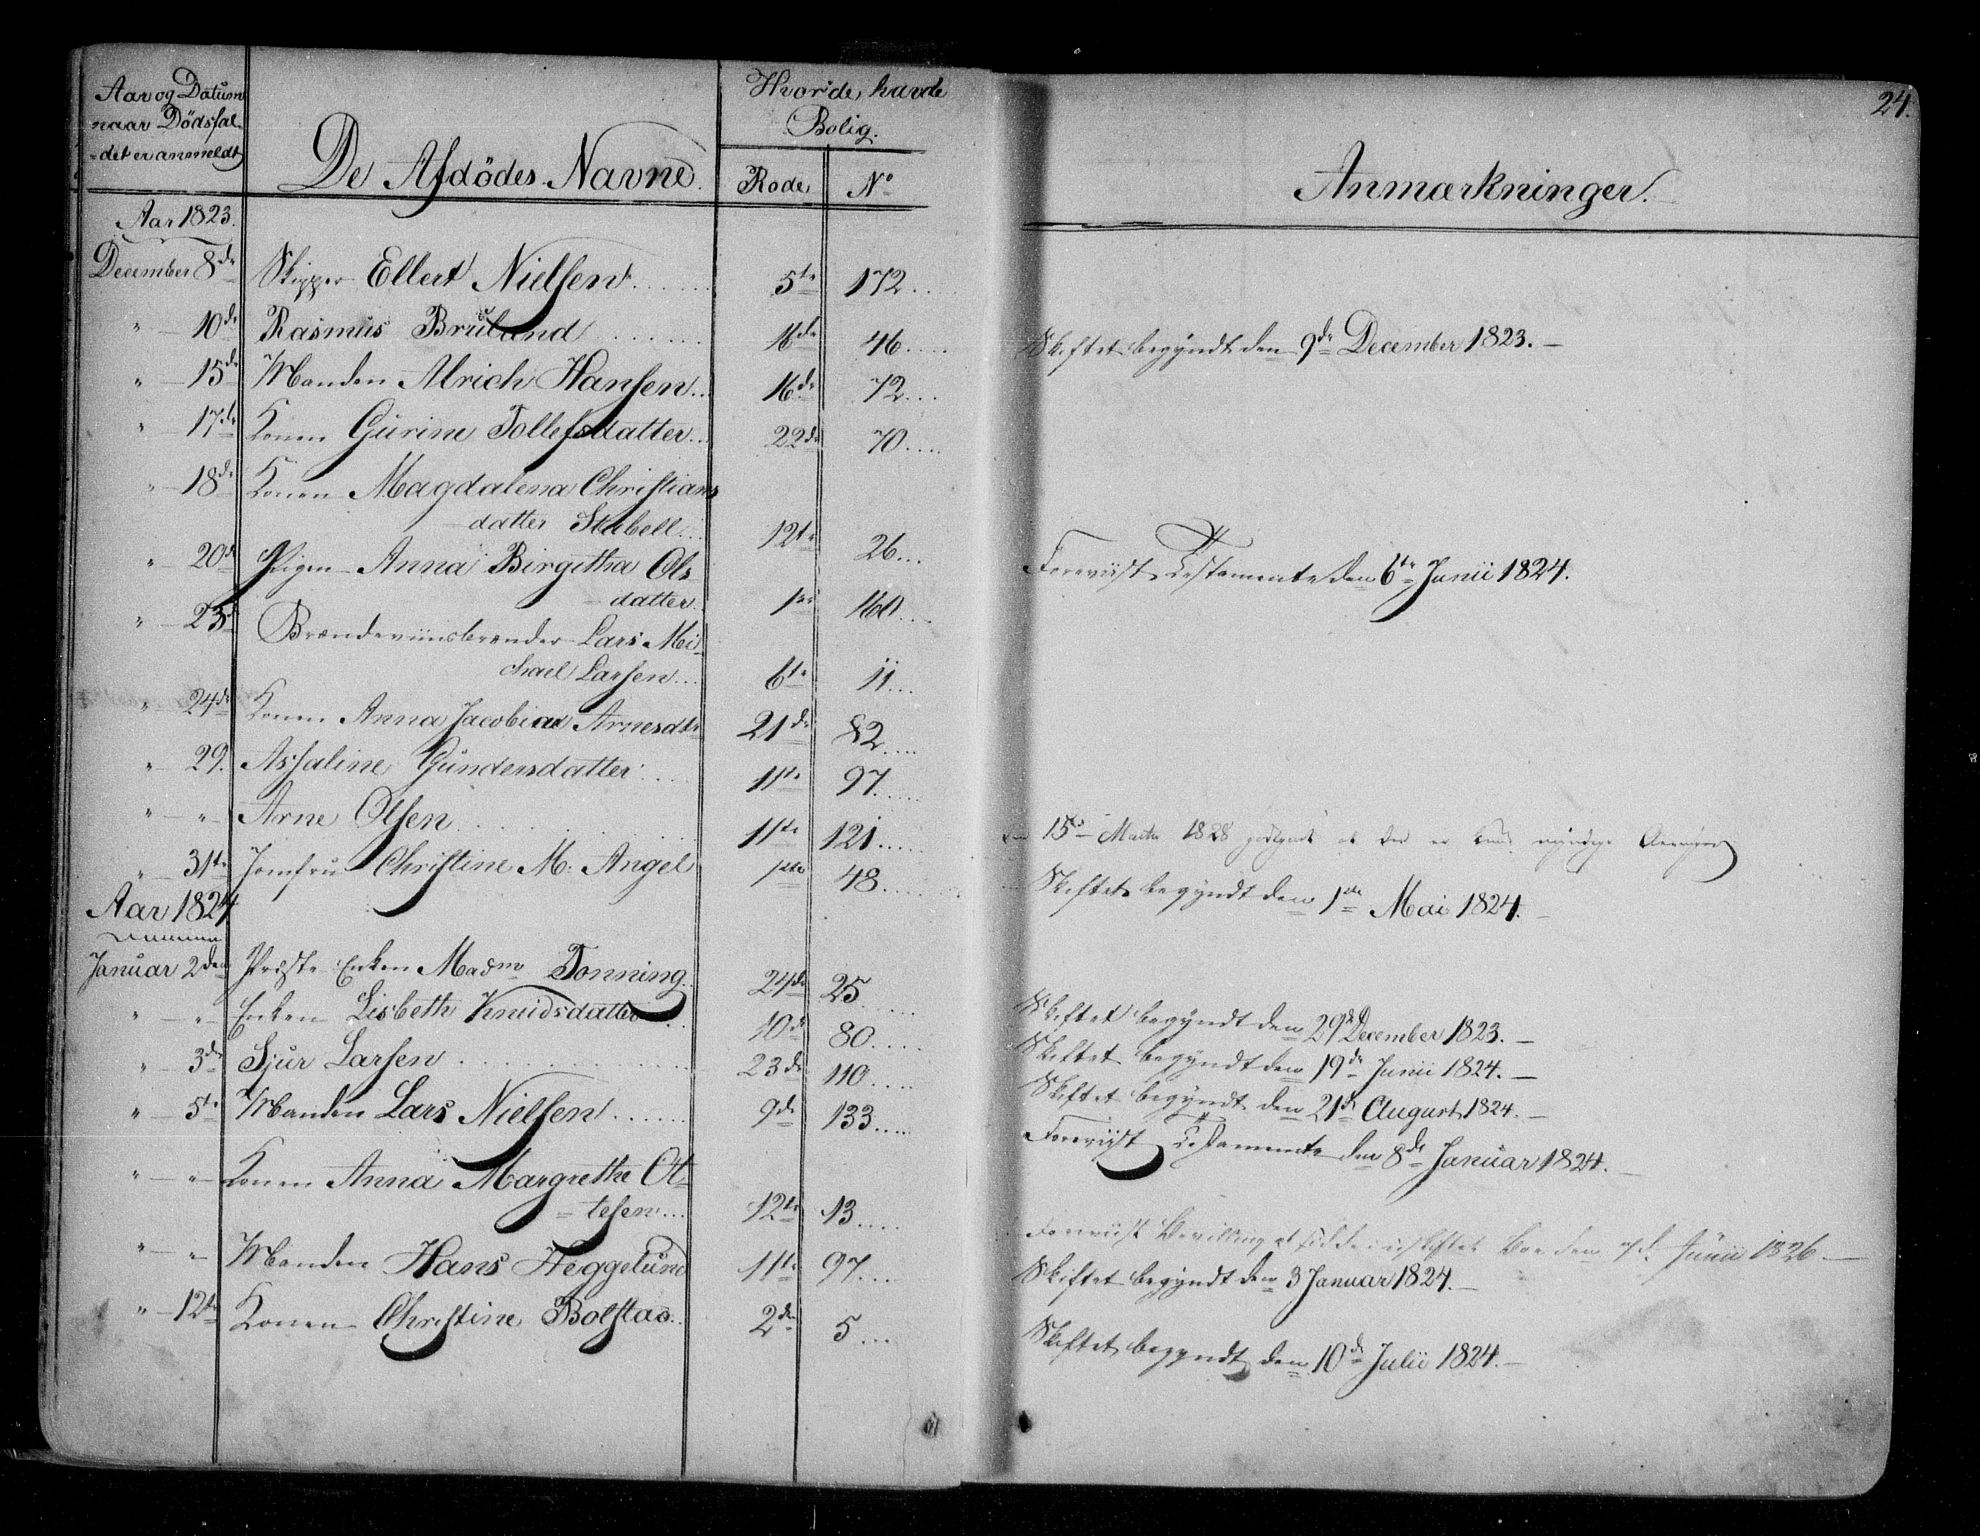 Aar og Datum
naar Dödsfal-
-det er anmeldt
De Afdödes Navne.
Hvor de havde
Bolig.
Rode
No
Aar 1823.
December 8de Skipper Ellert Nielsen 5te 172
" 10de Rasmus Bruland 16de 46
" 15de Manden Alrich Hansen 16de 72
" 17de Konen Gurine Tollefsdatter 22de 70
" 18de Konen Magdalena Christians
datter Stabell 12te 26
" 20de Pigen Anna Birgitha Ols
datter 1ste 160
" 23de Brændeviinsbrænder Lars Mi-
chael Larsen 6te 11
" 24de Konen Anna Jacobina Arnesdtr 21de 82
" 29. Assaline Gundersdatter 11te 97
" " Arne Olsen 11te 121
" 31te Jomfru Christine M: Angel 1ste 48
Aar 1824
Januar 2den Præste Enken Madme Tonning 24de 25
" " Enken Lisbeth Knudsdatter 10de 80
" 3de Sjur Larsen 23de 110
" 5te Manden Lars Nielsen 9de 133
" " Konen Anna Margrethe Ot-
tesen 12te 13
" " Manden Hans Heggelund 11te 97
" 12te Konen Christine Bolstad 2den 5
24.
Anmærkninger.
Skiftet begyndt den 9de December 1823.
Foreviist Testamente den 6te Junii 1824.
15de Marts 1828 godtgjort at der er kun myndige Arvinger
Skiftet begyndt den 1ste Mai 1824.
Skiftet begyndt den 29de December 1823.
Skiftet begyndt den 19de Junii 1824.
Skiftet begyndt den 21de August 1824.
Foreviist Testamente den 8de Januar 1824.
Foreviist Bevilling at sidde i uskiftet Boe den 7de Junii 1826
Skiftet begyndt den 3 Januar 1824.
Skiftet begyndt den 10de Julii 1824.